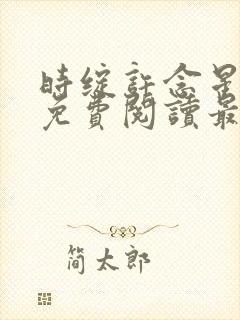 时绽許念星
免費閱讀最
简太郎